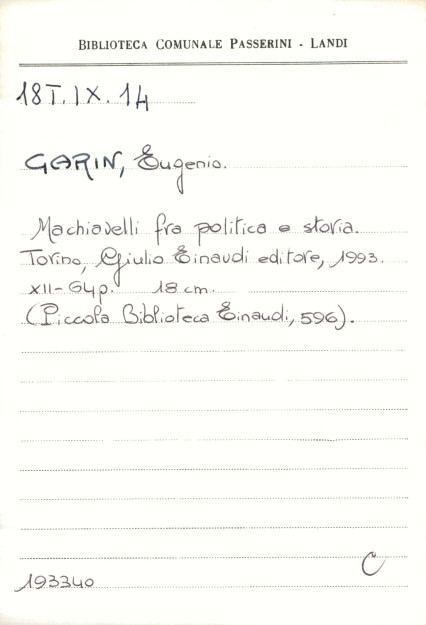 BIBLIOTECA COMUNALE PASSERINI - LANDI
18T.IX.14
GARIN, Eugenio.
Machiavelli fra politica e storia.
Torino, Giulio Einaudi editore, 1993.
XII-64p. 18 cm.
(Piccola Biblioteca Einaudi, 596).
C
193340